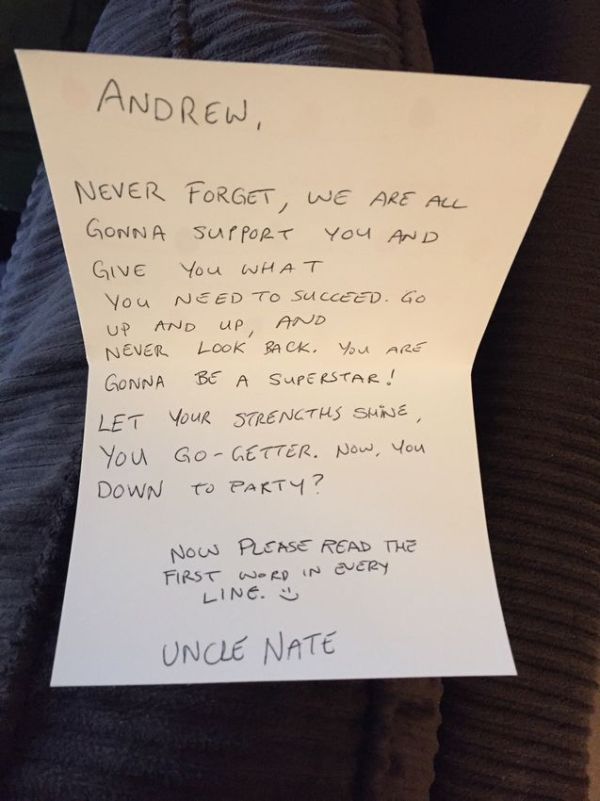 ANDREW,
NEVER FORGET, WE ARE ALL
GONNA SUPPORT YOU AND
GIVE YOU WHAT
YOU NEED TO SUCCEED. GO
UP AND UP, AND
NEVER LOOK BACK. YOU ARE
GONNA BE A SUPERSTAR!
LET YOUR STRENGTHS SHINE,
YOU GO-GETTER. NOW, YOU
DOWN TO PARTY?
NOW PLEASE READ THE
FIRST WORD IN EVERY
LINE. :)
UNCLE NATE